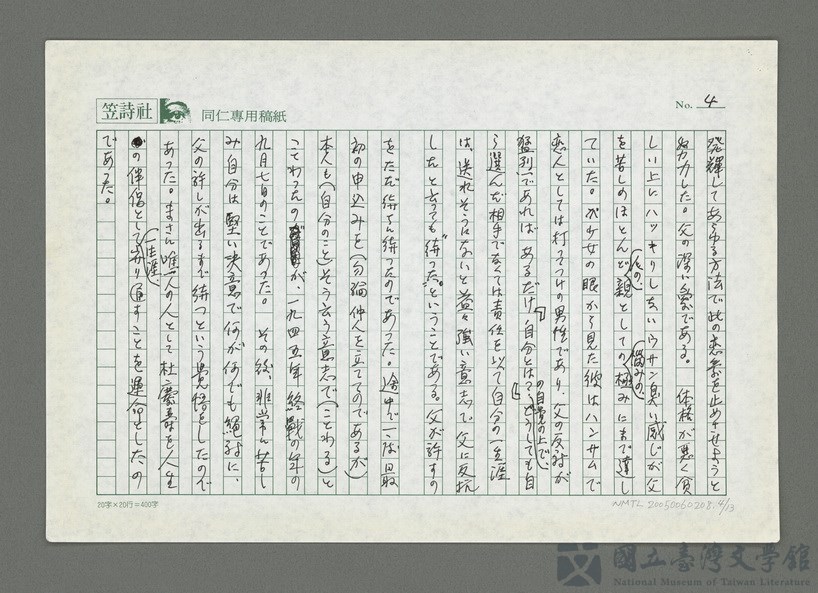 笠詩社
同仁専用稿紙
No. 4
発揮してあらゆる方法で此の恋愛を止めさせようと
努力した。父の深い愛である。 体格が悪く貧
しい上にハッキリしないウサン臭い感じが父
を苦しめほとんど親としての極みにまで達し
ていた。が少女の眼から見た彼はハンサムで
恋人としては打ってつけの男性であり、父の反対が
猛烈であれば あるだけ 自分とは どうしても自
の自覚の上で、
ら選んだ相手でなくては責任を以て自分の一生涯
は、送れそうにないと益々強い意志で父に反抗
したと言っても"待った"ということである。父が許すの
をただ待ちに待ったのであった。途中で一度 最
初の申込みを(勿論仲人を立ててのであるが)
本人も(自分のこと)そう云う意志で(ことわる)と
ことわったの が、一九四五年 終戦の年の
九月七日のことであった。 その後、非常に苦し
み自分は堅い決意で何が何でも絶対に、
父の許しが出るまで待つという覚悟をしたので
あった。まさに唯一人の人として杜慶壽を人生
の伴侶として 通すことを運命としたの
一生涯、
であった。
20字×20行=400字
NMTL 20050060208 4/13
國立臺灣文學館
National Museum of Taiwan Literature